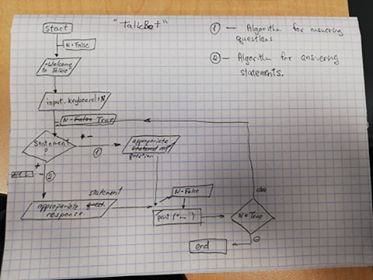 "TalkBot"
start
N=False
"Welcome
to Talkbot"
input_keyboard=$
N=False True
Statement
?
+
-
1
2
appropriate
question
statement
appropriate
response
N=False
print ("...")
else
N=True
end
1 — Algorithm for answering
questions
2 — Algorithm for answering
statements.